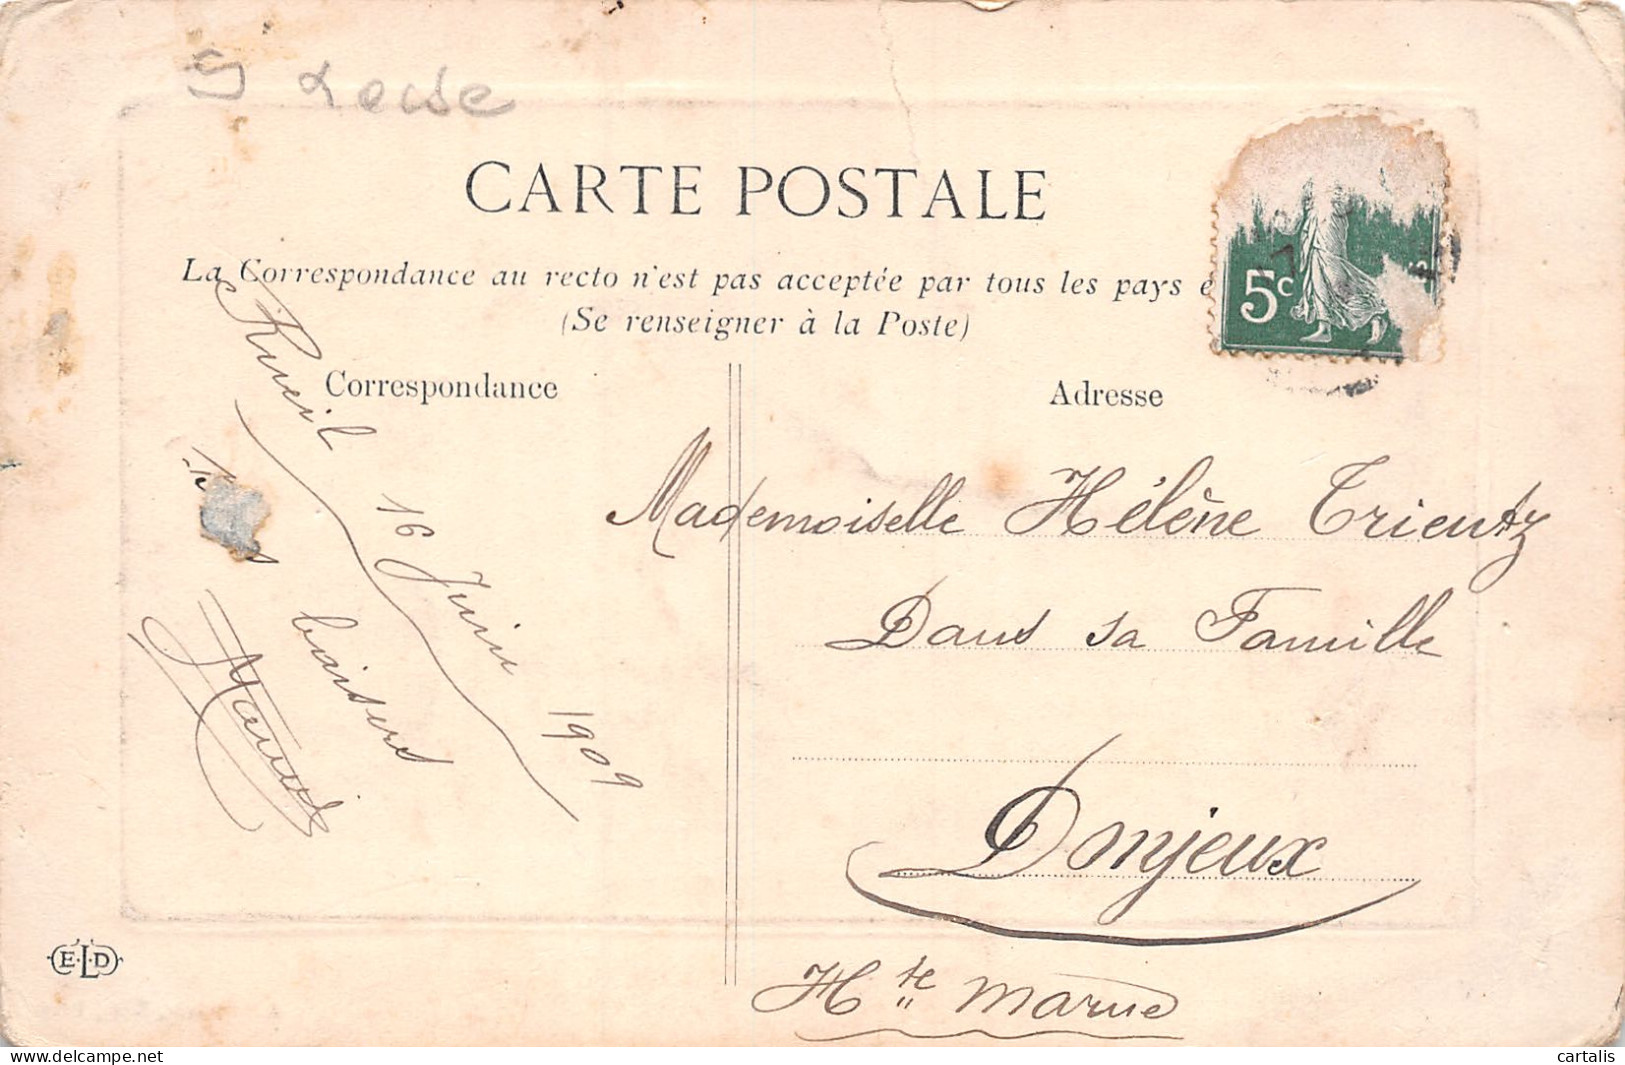 CARTE POSTALE
La Correspondance au recto n'est pas acceptée par tous les pays
(Se renseigner à la Poste)
Correspondance
Adresse
5c
Rueil
16 Juin 1909
baisers
Mademoiselle Hélène Trientz
Dans sa Famille
Donjeux
Hte Marne
E.L.D
cartalis